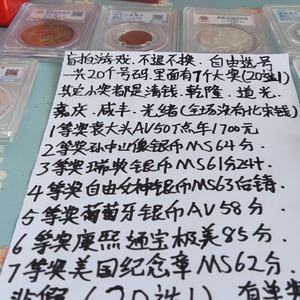 盲拍游戏.不退不换.自由选号
一共20个号码.里面有7个大奖(20选1)
其它小奖都是清钱.乾隆.道光.
嘉庆.咸丰.光绪(全场没有北宋钱)
1等奖袁大头AV50丁点年1700元
2等奖孙中山像银币MS64分.
3等奖瑞典银币MS61分24H.
4等奖自由女神银币MS63白铸
5等奖葡萄牙银币AV58分.
6等奖康熙通宝极美85分.
7等奖美国纪念章MS62分.